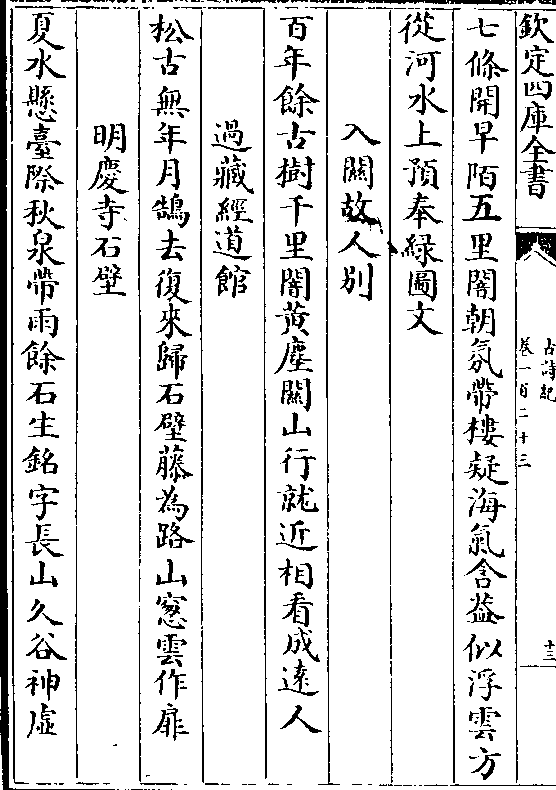 欽定四庫全書
古詩紀
卷一百二十三
十三
七條開早陌五里闇朝氛帶樓疑海氣含葢似浮雲方
從河水上預奉緑圖文
入關故人別
百年餘古樹千里闇黃塵關山行就近相看成逺人
過藏經道館
松古無年月鵠去復來歸石壁藤為路山窓雲作扉
明慶寺石壁
夏水懸臺際秋泉帶雨餘石生銘字長山久谷神虛